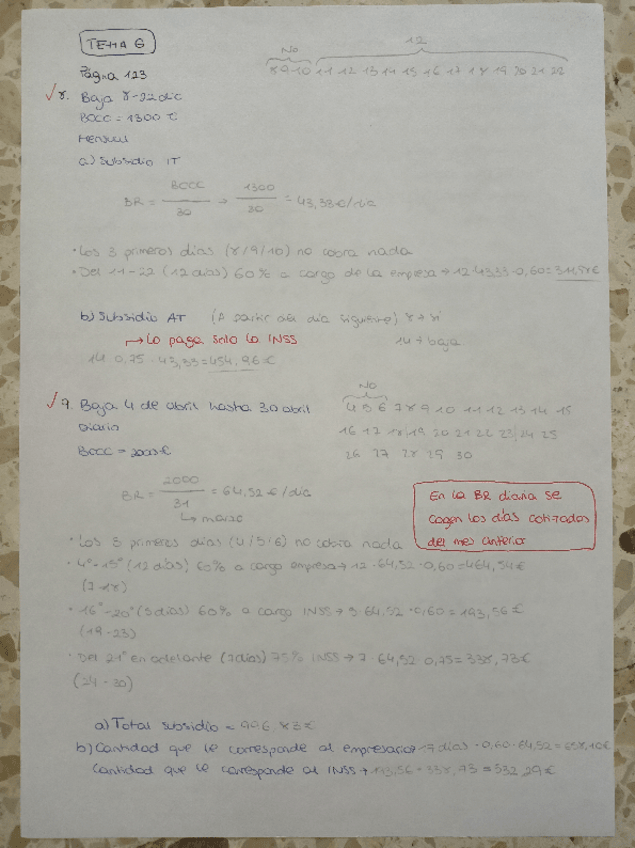 TEMA 6
No 12
Página 123 8 9 10 11 12 13 14 15 16 17 18 19 20 21 22
8. Baja 8-22 dic
BCCC = 1300 €
Mensual
a) Subsidio IT
BR = BCCC / 30 → 1300 / 30 = 43,33€/dia
· Los 3 primeros dias (8/9/10) no cobra nada
· Del 11-22 (12 dias) 60% a cargo de la empresa → 12·43'33·0,60 =
b) Subsidio AT (A partir del dia siguiente) 8 → si
→ Lo paga solo la INSS 14 → baja
14 · 0,75 · 43,33 = 454,96€
No
9. Baja 4 de abril hasta 30 abril 4 5 6 7 8 9 10 11 12 13 14 15
Diario 16 17 18/19 20 21 22 23/24 25
BCCC = 2000€ 26 27 28 29 30
BR = 2000 / 31 = 64,52 €/dia
↳ marzo
En la BR diaria se
cogen los días cotizados
del mes anterior
· Los 3 primeros dias (4/5/6) no cobra nada
· 4º-15º (12 dias) 60% a cargo empresa → 12 · 64,52 · 0,60 = 464,54€
(7-18)
· 16º-20º (5 dias) 60% a cargo INSS → 5 · 64,52 · 0,60 = 193,56€
(19-23)
· Del 21º en adelante (7 dias) 75% INSS → 7 · 64,52 · 0,75 = 338,73€
(24-30)
a) Total subsidio = 996,83€
b) Cantidad que le corresponde al empresario → 17 dias · 0,60 · 64,52 = 658,10€
Cantidad que le corresponde al INSS → 193,56 + 338,73 = 532,29€